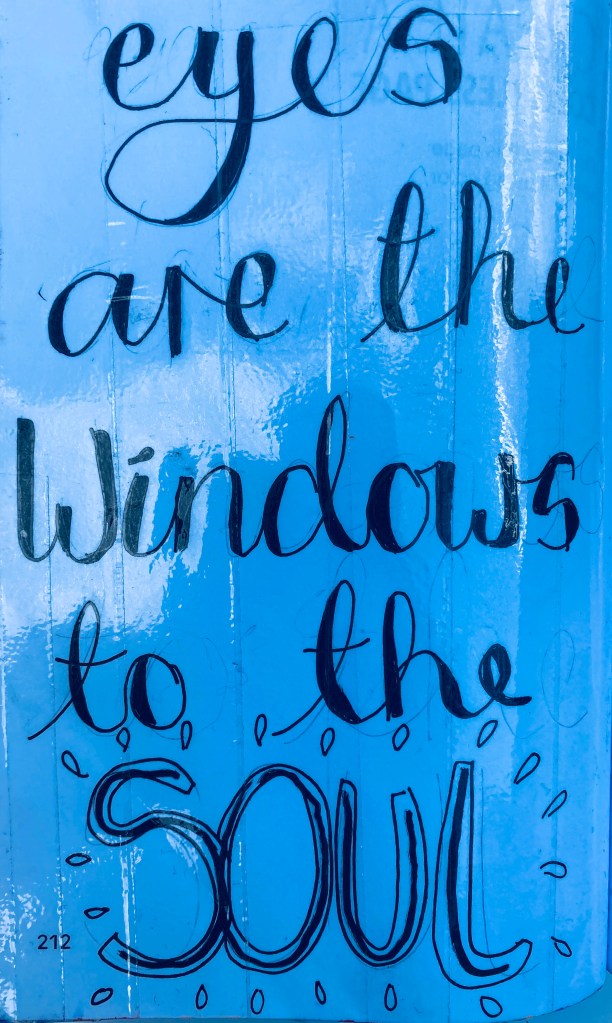 eyes
are the
Windows
to the
SOUL
212